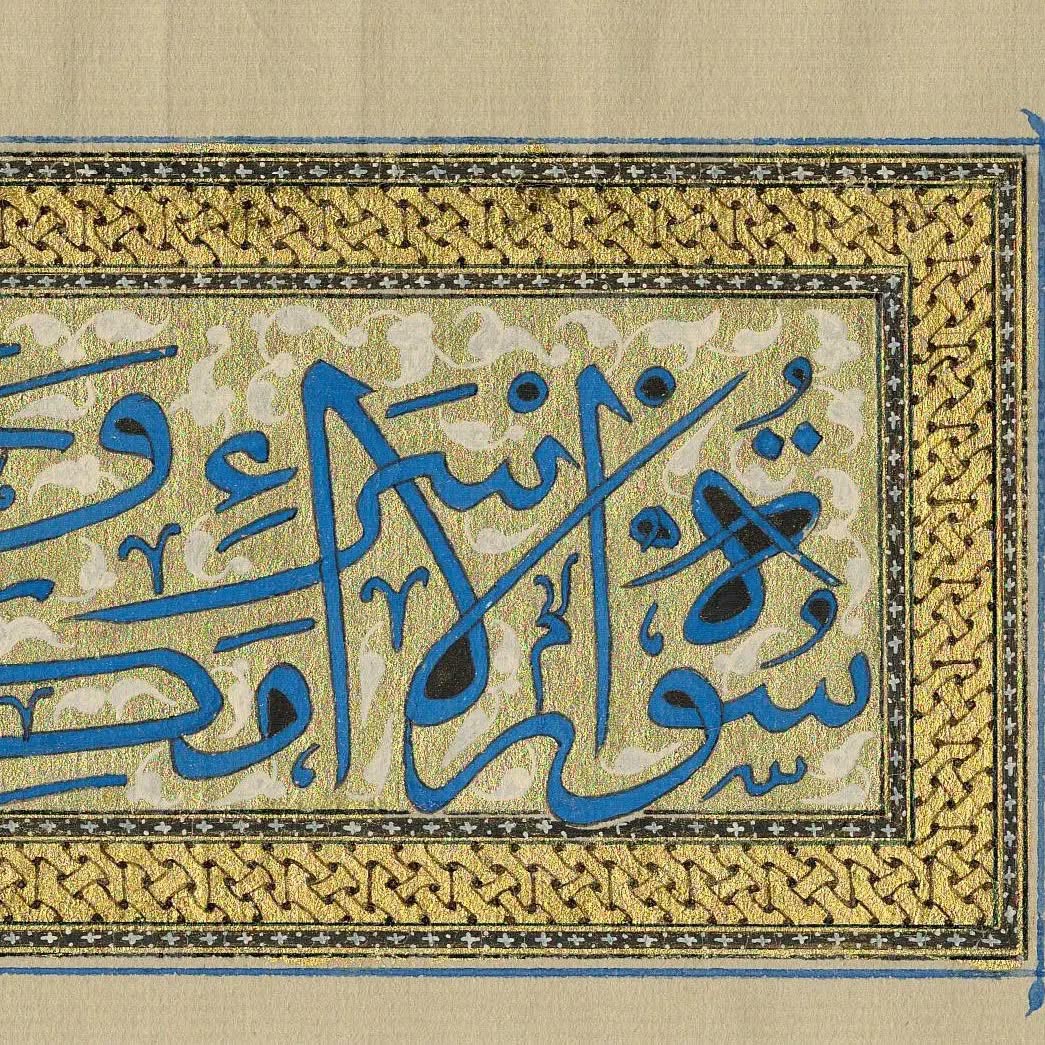 سُورَةُ الْإِسْرَاءِ